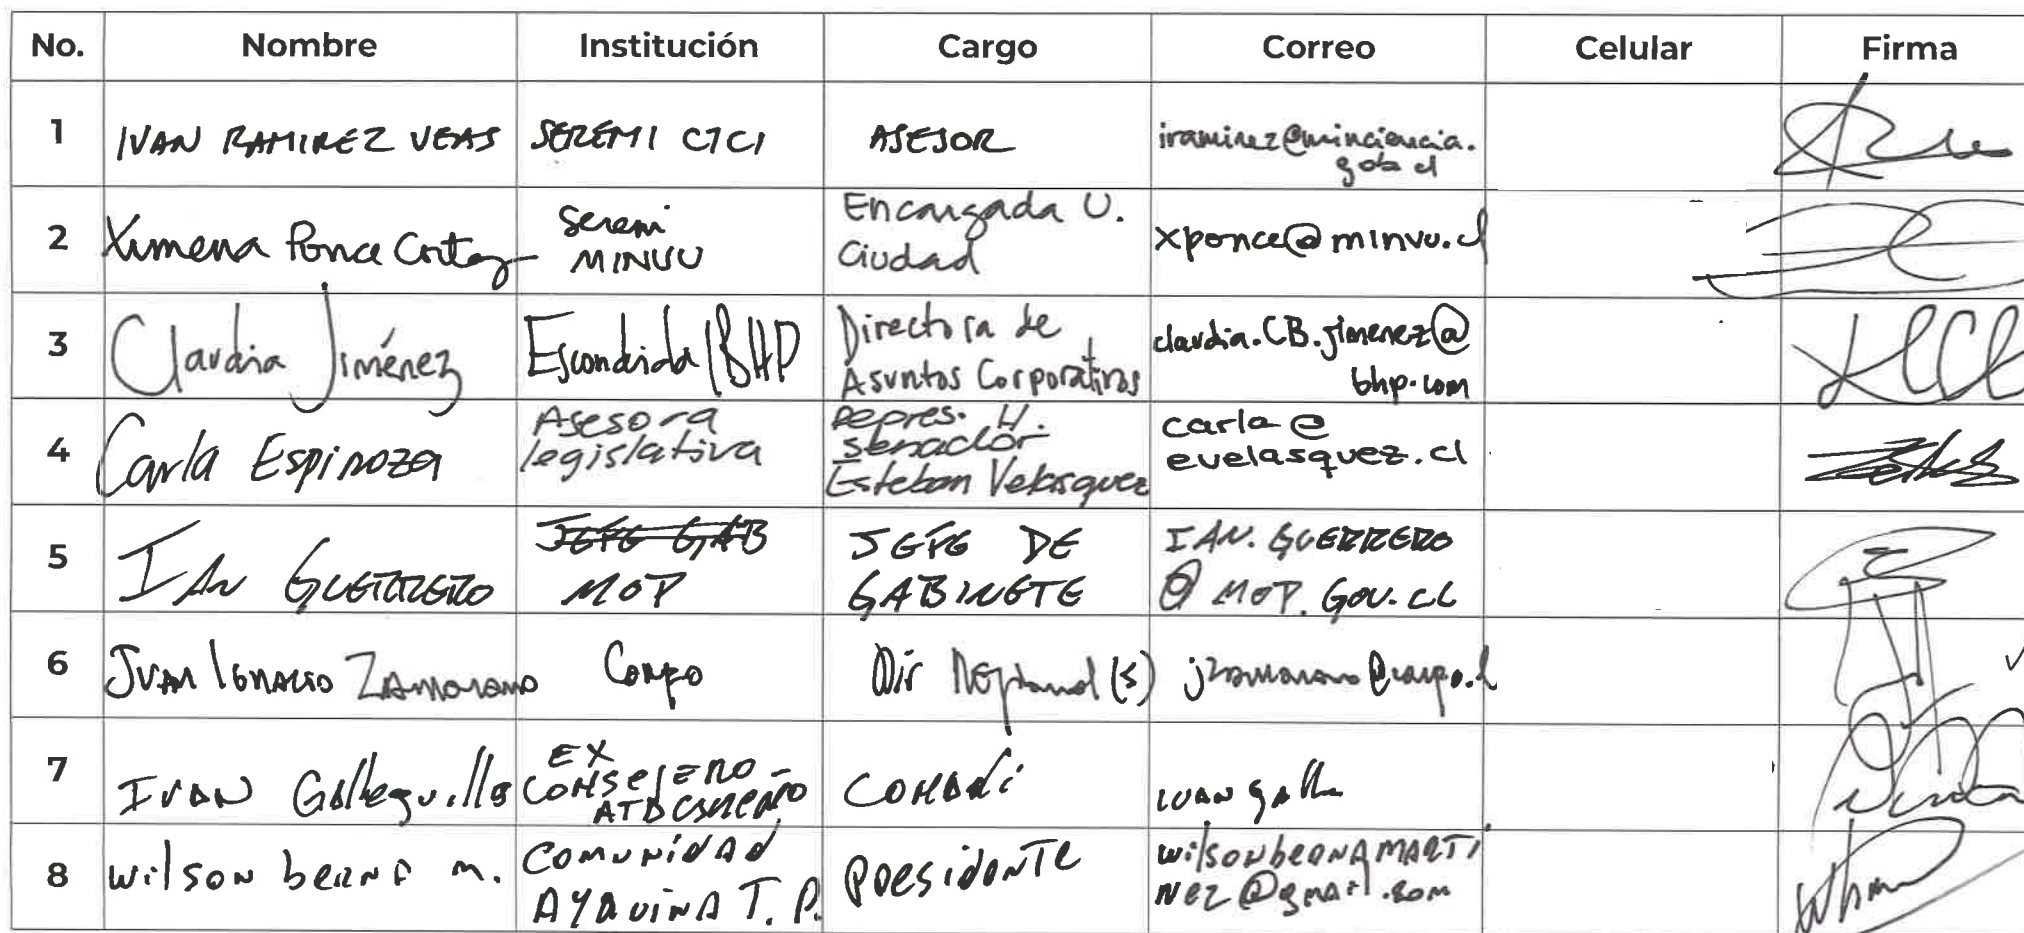 No. Nombre Institución Cargo Correo Celular Firma
1 IVAN RAMIREZ VEAS SEREMI CTCI ASESOR iraminez@minciencia.
gob.cl
2 Ximena Ponce Cortez Seremi MINVU Encargada U. Ciudad xponce@minvu.cl
3 Claudia Jiménez Escondida/BHP Directora de Asuntos Corporativos claudia.CB.jimenez@
bhp.com
4 Carla Espinoza Asesora legislativa Repres. H. Senador Esteban Velasquez carla@
evelasquez.cl
5 IAN GUERRERO JEFE GAB MOP JEFE DE GABINETE IAN.GUERRERO
@MOP.GOV.CL
6 JUAN IGNACIO ZAMORANO Corfo Dir Regional (s) jzamorano@corfo.cl
7 IVAN Galleguillos EX CONSEJERO ATACAMEÑO CONADi IVAN gall
8 wilson berna m. COMUNIDAD AYQUINA T. P. PRESIDENTE wilsonbernAMARTI
NEZ@gmail.com